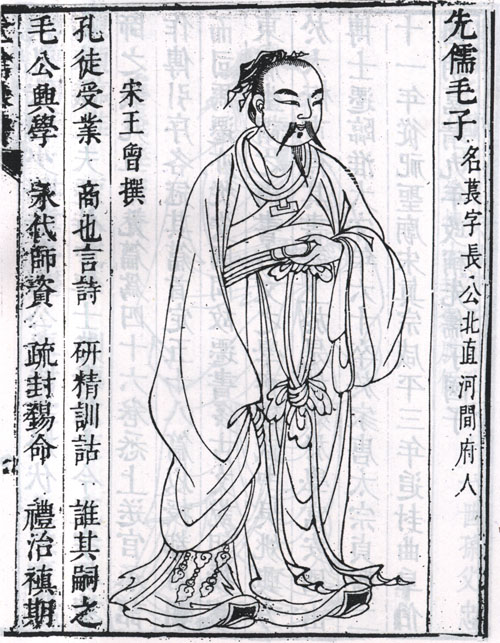 先儒毛子 名萇字長公北直河間府人
宋王曾撰
孔徒受業 商也言詩 研精訓詁 誰其嗣之
毛公興學 永代師資 疏封錫命 禮治禎期